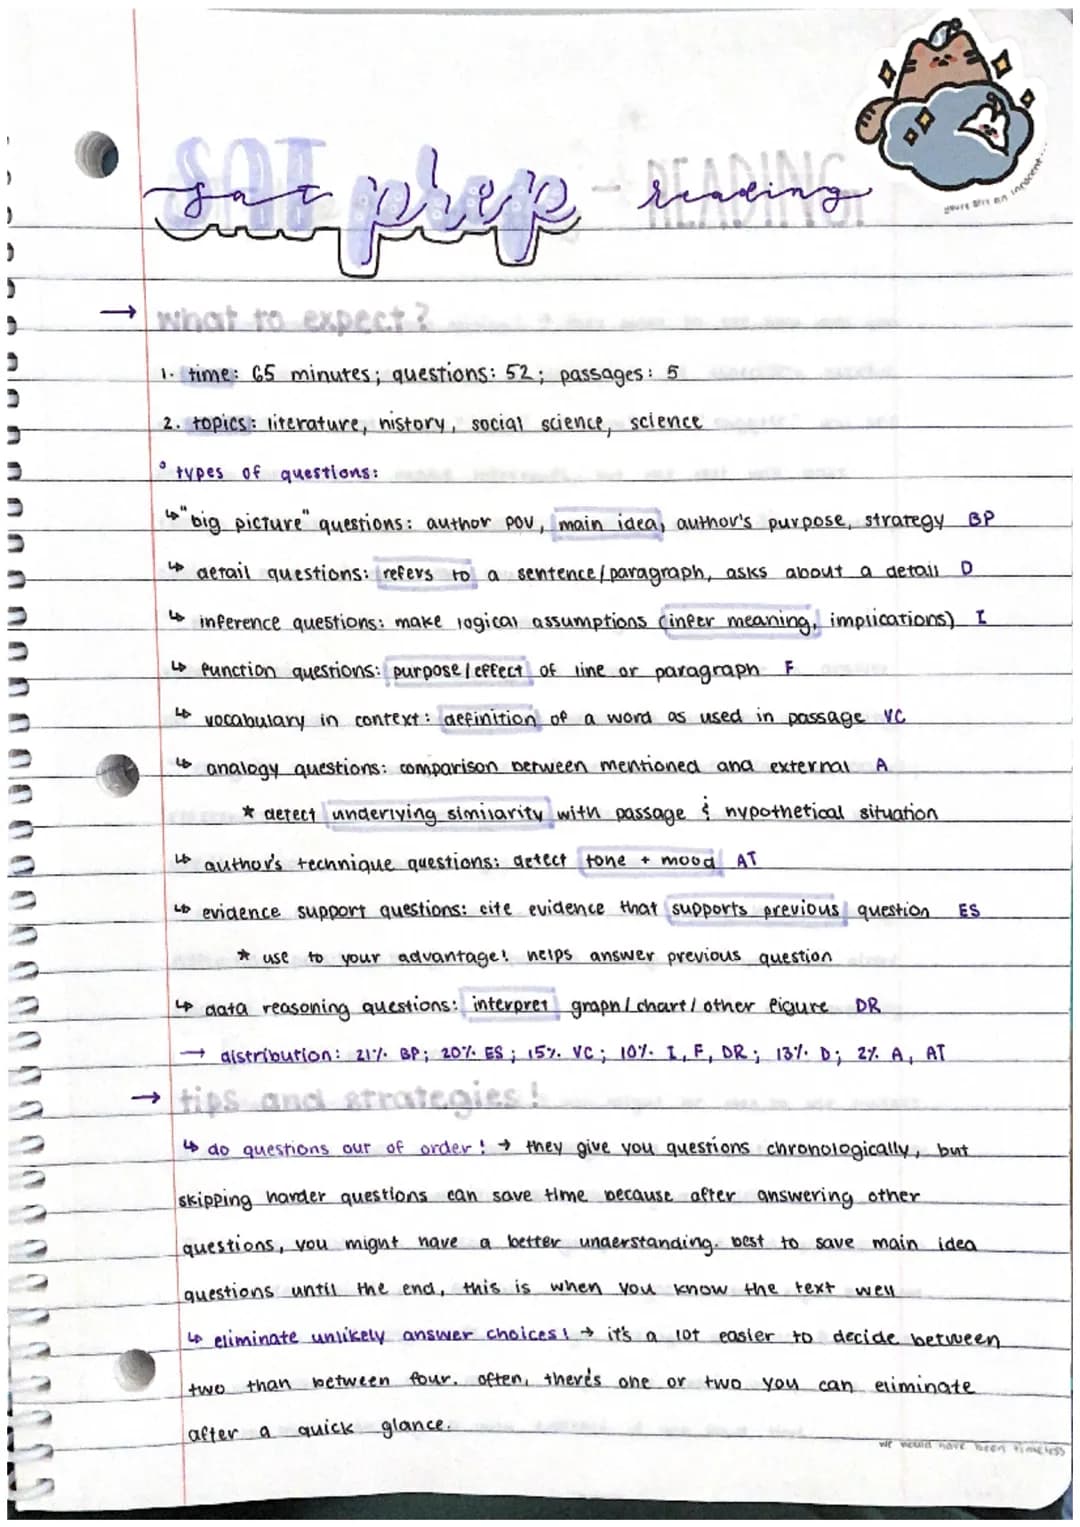 SAT prep - READING!
sat prep - reading
you're still an innocent...
→ what to expect?
1. time: 65 minutes; questions: 52; passages: 5
2. topics: literature, history, social science, science
° types of questions:
↳ "big picture" questions: author pov, main idea, author's purpose, strategy BP
↳ detail questions: refers to a sentence/paragraph, asks about a detail D
↳ inference questions: make logical assumptions (infer meaning, implications) I
↳ function questions: purpose/effect of line or paragraph F
↳ vocabulary in context: definition of a word as used in passage VC
↳ analogy questions: comparison between mentioned and external A
* detect underlying similarity with passage & hypothetical situation
↳ author's technique questions: detect tone + mood AT
↳ evidence support questions: cite evidence that supports previous question ES
* use to your advantage! helps answer previous question
↳ data reasoning questions: interpret graph/chart/other figure DR
→ distribution: 21% BP; 20% ES; 15% VC; 10% I, F, DR; 13% D; 2% A, AT
→ tips and strategies!
↳ do questions out of order! → they give you questions chronologically, but
skipping harder questions can save time because after answering other
questions, you might have a better understanding. best to save main idea
questions until the end, this is when you know the text well
↳ eliminate unlikely answer choices! → it's a lot easier to decide between
two than between four. often, there's one or two you can eliminate
after a quick glance.
we would have been timeless